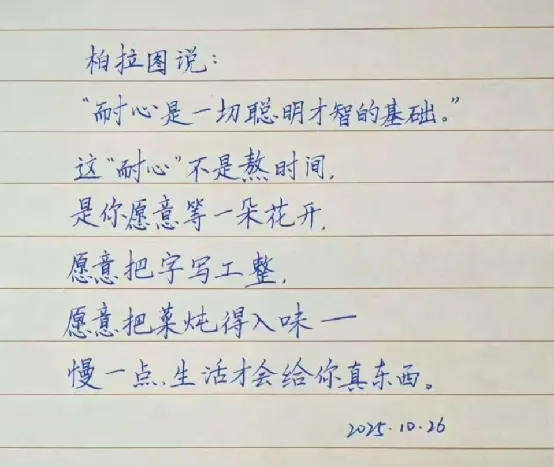 柏拉图说：
“耐心是一切聪明才智的基础。”
这“耐心”不是熬时间，
是你愿意等一朵花开，
愿意把字写工整，
愿意把菜炖得入味—
慢一点，生活才会给你真东西。
2025.10.26